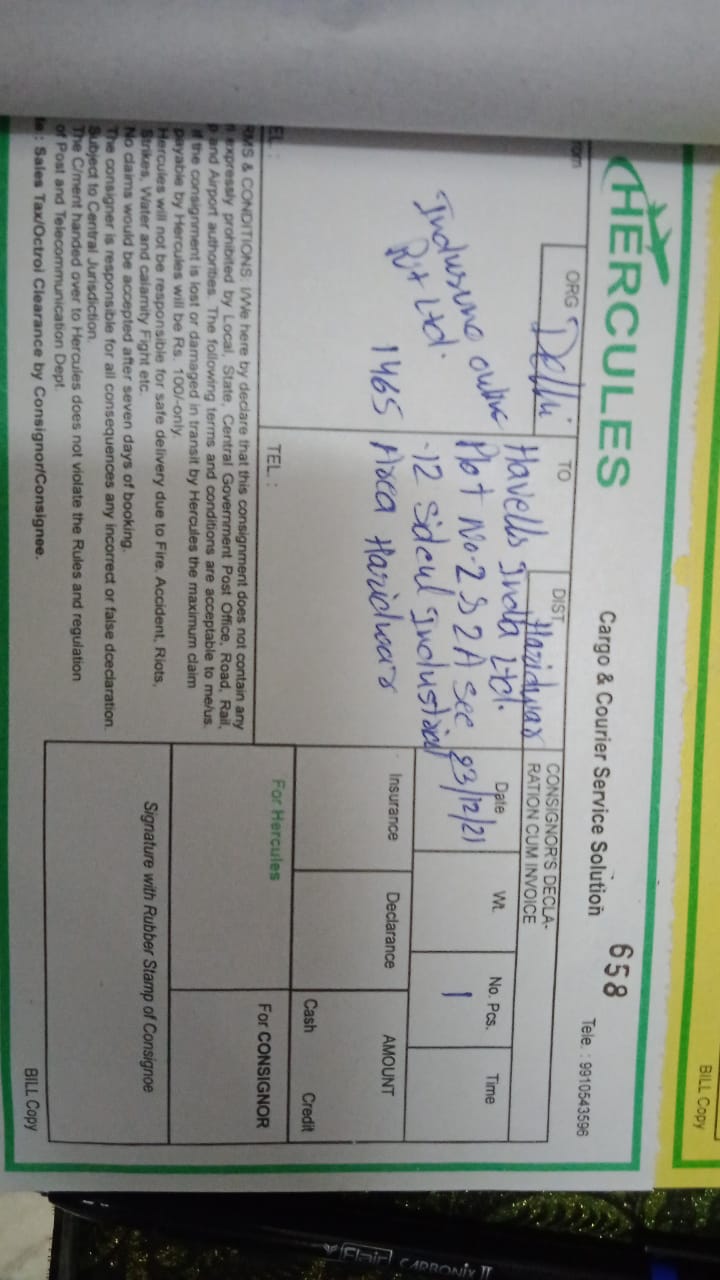 BILL Copy
HERCULES
Cargo & Courier Service Solution
658
Tele. : 9910543596
ORG
Delhi
TO
DIST.
Haridwar
CONSIGNOR'S DECLA-
RATION CUM INVOICE
online
Pvt Ltd.
1465
Havells India Ltd.
Plot No-2 & 2A Sec
-12 Sidcul Industrial
Area Haridwar
Date
Wt.
No. Pcs.
Time
23/12/21
1
Insurance
Declarance
AMOUNT
Cash
Credit
TEL. :
For Hercules
For CONSIGNOR
RMS & CONDITIONS: I/We here by declare that this consignment does not contain any
expressly prohibited by Local, State, Central Government Post Office, Road, Rail,
and Airport authorities. The following terms and conditions are acceptable to me/us.
If the consignment is lost or damaged in transit by Hercules the maximum claim
payable by Hercules will be Rs. 100/-only.
Hercules will not be responsible for safe delivery due to Fire, Accident, Riots,
Strikes, Water and calamity Fight etc.
No claims would be accepted after seven days of booking.
The consigner is responsible for all consequences any incorrect or false dceclaration.
Subject to Central Jurisdiction.
The C/ment handed over to Hercules does not violate the Rules and regulation
of Post and Telecommunication Dept.
Sales Tax/Octrol Clearance by Consignor/Consignee.
Signature with Rubber Stamp of Consignoe
BILL Copy
Flair CARBONIX